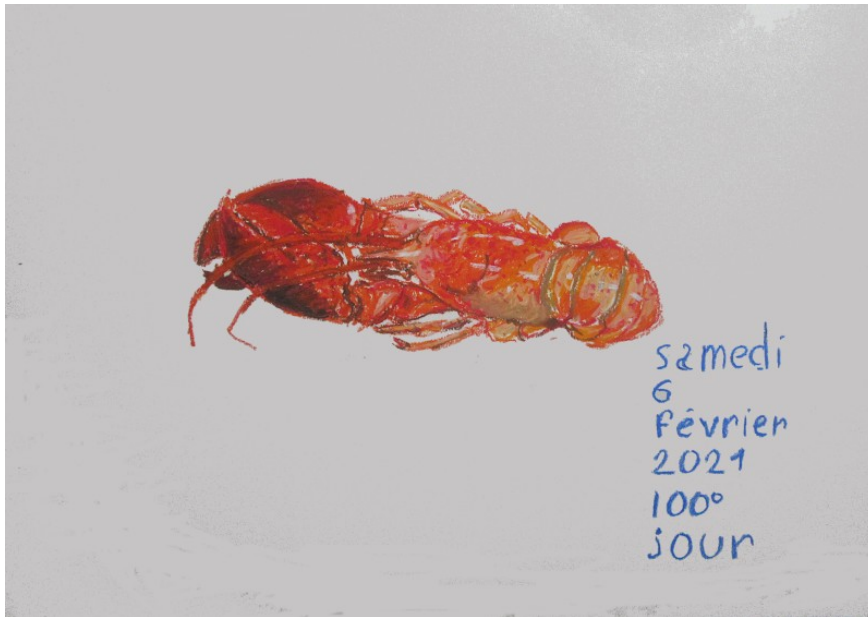 samedi
6
février
2021
100°
jour